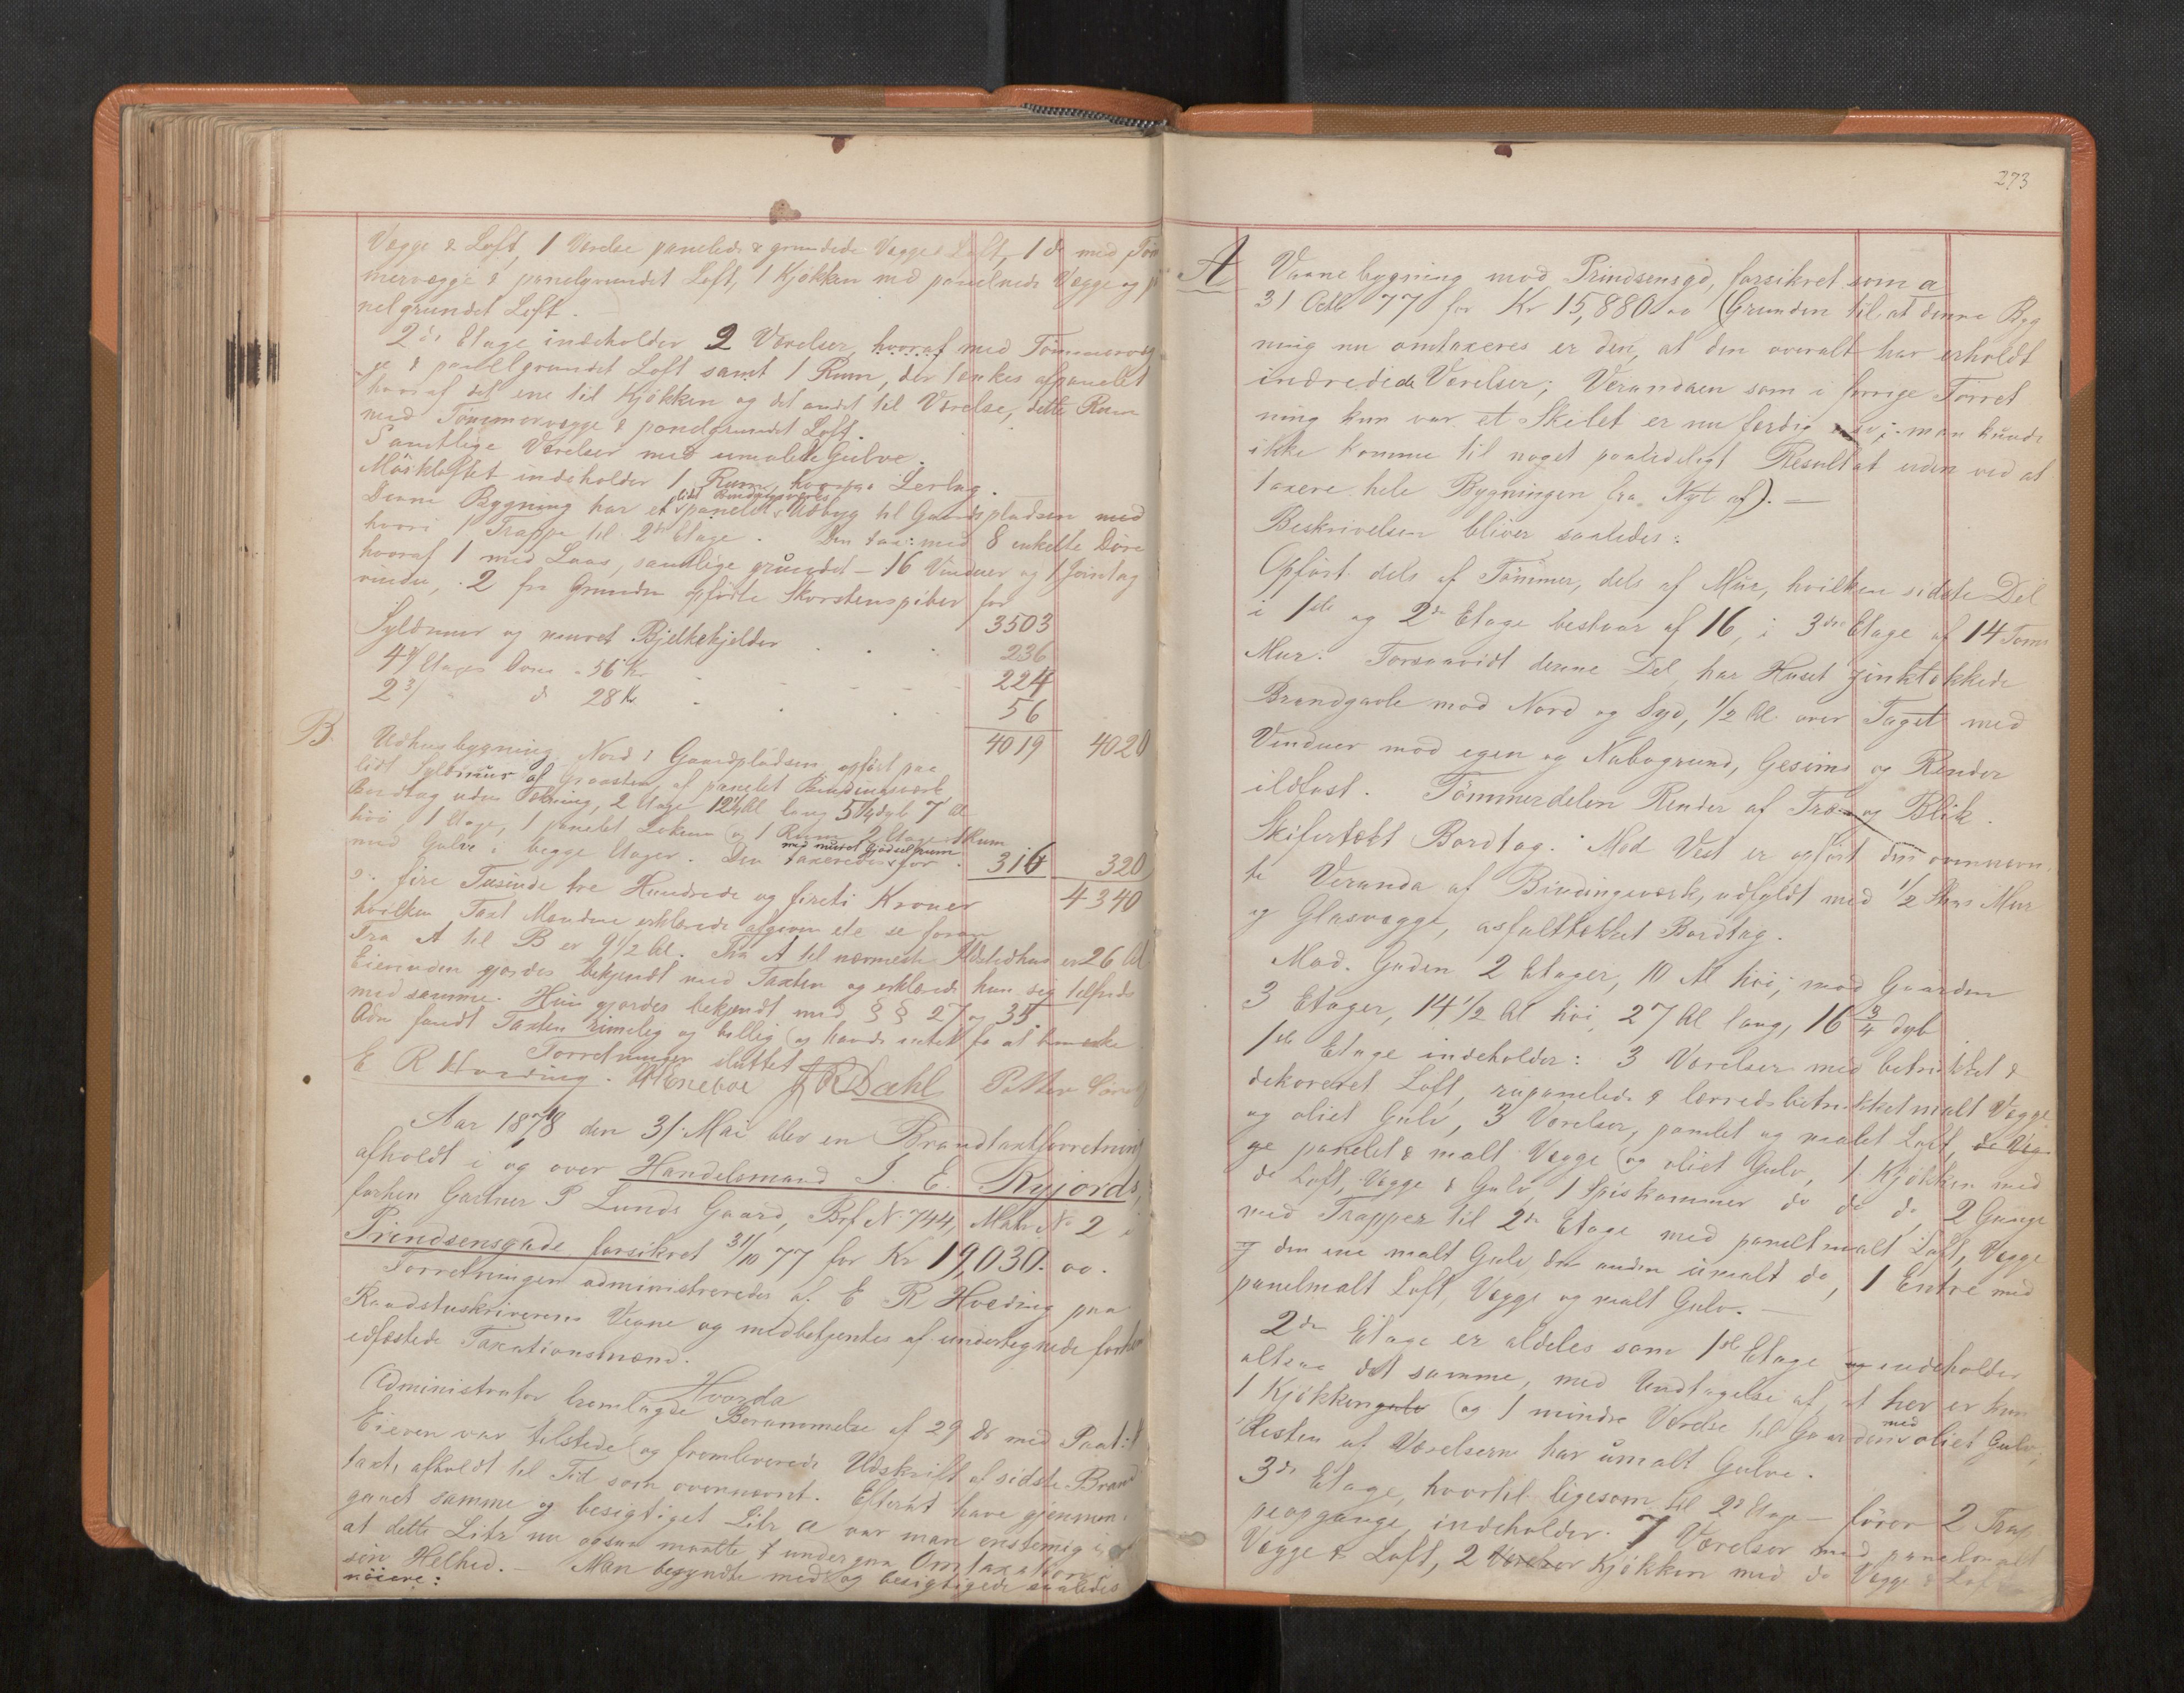 Vægge & Loft, 1 Værelse panelede & grundede Vægge & Loft, 1 do med Töm
mervægge & panelgrundet Loft, 1 Kjökken med panelede Vægge og pa
nelgrundet Loft.
2de Etage indeholder 2 Værelser, hvoraf med Tömmervæg
ge & panelgrundet Loft samt 1 Rum, der tænkes afpanelet
hvoraf det ene til Kjökken og det andet til Værelse, dette Rum
med Tömmervægge & panelgrundet Loft.
Samtlige Værelser med umalede Gulve.
Mörkloftet indeholder 1 Rum, hvorpaa Lerlag.
lidt Bindingsværks
Denne Bygning har et panelet Udbyg til Gaardspladsen med
hvori 1 Trappe til 2den Etage. Den tax: med 8 enkelte Döre
hvoraf 1 med Laas, samtlige grundet – 16 Vinduer og 1 Jerntag
vindu, 2 fra Grunden opförte Skorstenspiber for
3503
Syldmur og muret Bjelkekjelder 236
4 Etages Ovne 56 Kr 224
2 do 28 Kr 56
4019 4020
B. Udhusbygning Nord i Gaardspladsen opfört paa
lidt Syldmur af Graasten, af panelet Bindingsværk
Bordtag uden Tækning, 2 Etage 12¼ Al lang 5¼ dyb 7 Al
höi 1 Etage, 1 panelet Lokum og 1 Rum 2 Etage 1 Rum
med muret Gjödselrum
med Gulve i begge Etager. Den taxeredes for 316 320
4340
o: fire Tusinde tre Hundrede og fireti Kroner
hvilken Taxt Mændene erklærede afgiven etc se foran
Fra A til B er 9½ Al. Fra A til nærmeste Ildstedhus er 26 Al
Eierinden gjordes bekjendt med Taxten og erklærede hun sig tilfreds
med samme. Hun gjordes bekjendt med § § 27 og 35.
Adm fandt Taxten rimelig og billig og havde intet for at bemærke
Forretningen sluttet
E R Hvoding. J R Dahl Petter
Aar 1878 den 31 Mai blev en Brandtaxtforretning
afholdt i og over Handelsmand J. E. Ryjords,
forhen Gartner P Lunds Gaard, Brf No 744, Matr No 2 i
Prindsensgade forsikret 31/10 77 for Kr 19,030. 00.
Forretningen administreredes af E R Hvoding paa
Raadstuskriverens Vegne og medbetjentes af undertegnede forhen
edfæstede Taxationsmænd.
Hvorda
Administrator fremlagde Berammelse af 29 ds med Paat:
Eieren var tilstede og fremleverede Udskrift af sidste Brand
taxt, afholdt til Tid som ovennævnt. Efterat have gjennem
gaaet samme og besigtiget Litr a var man enstemig i, at
at dette Litr nu ogsaa maatte undergaa Omtaxation i
sin Helhed. – Man begyndte med og besigtigede saaledes
nöiere:
273
A Vaanebygning mod Prindsensgd, forsikret som a
31 Octb 77 for Kr 15,880 00 (Grunden til at denne Byg
ning nu omtaxeres er den, at den overalt har erholdt
indredede Værelser; Verandaen som i forrige Forret
ning kun var et Skelet er nu færdig; man kunde
ikke komme til noget paalideligt Resultat uden ved at
taxere hele Bygningen fra Nyt af). –
Beskrivelsen bliver saaledes:
Opfört dels af Tömmer, dels af Mur, hvilken sidste Del
i 1ste og 2den Etage bestaar af 16, i 3die Etage af 14 Toms
Mur. Forsaavidt denne Del, har Huset zinktækkede
Brandgavle mod Nord og Syd, ½ Al. over Taget med
Vinduer mod egen og Nabogrund, Gesims og Render
ildfast. Tömmerdelen Render af Træ og Blik.
Skifertækt Bordtag. Mod Vest er opfört den ovennævn
te Veranda af Bindingsværk, udfyldt med ½ Stens Mur
og Glasvægge, asfalttækket Bordtag.
Mod Gaden 2 Etager, 10 Al höi, mod Gaarden
3 Etager, 14½ Al höi, 27 Al lang, 16¾ dyb
1ste Etage indeholder: 3 Værelser med betrukket &
dekoreret Loft, rupanelede & lærredsbetrukket malt Vægge
og oliet Gulv, 3 Værelser, panelet og malet Loft, de Væg
ge panelet & malt Vægge og oliet Gulv, 1 Kjökken med
do Loft, Vægge & Gulv, 1 Spiskammer do do do, 2 Gange
med Trapper til 2den Etage med paneltmalt Loft, Vægge
og den ene malt Gulv, den anden umalt do, 1 Entré med
panelmalt Loft, Vægge og malt Gulv. –
2den Etage er aldeles som 1ste Etage og indeholder
altsaa det samme, med Undtagelse af, at her er kun
1 Kjökken gulv og 1 mindre Værelse til Gaarden med oliet Gulv;
Resten af Værelserne har umalt Gulve.
3de Etage, hvortil ligesom til 2d Etage förer 2 Trap
peopgange, indeholder 7 Værelser med panelmalt
Vægge & Loft, 2 Værelser Kjökken med do Vægge & Loft